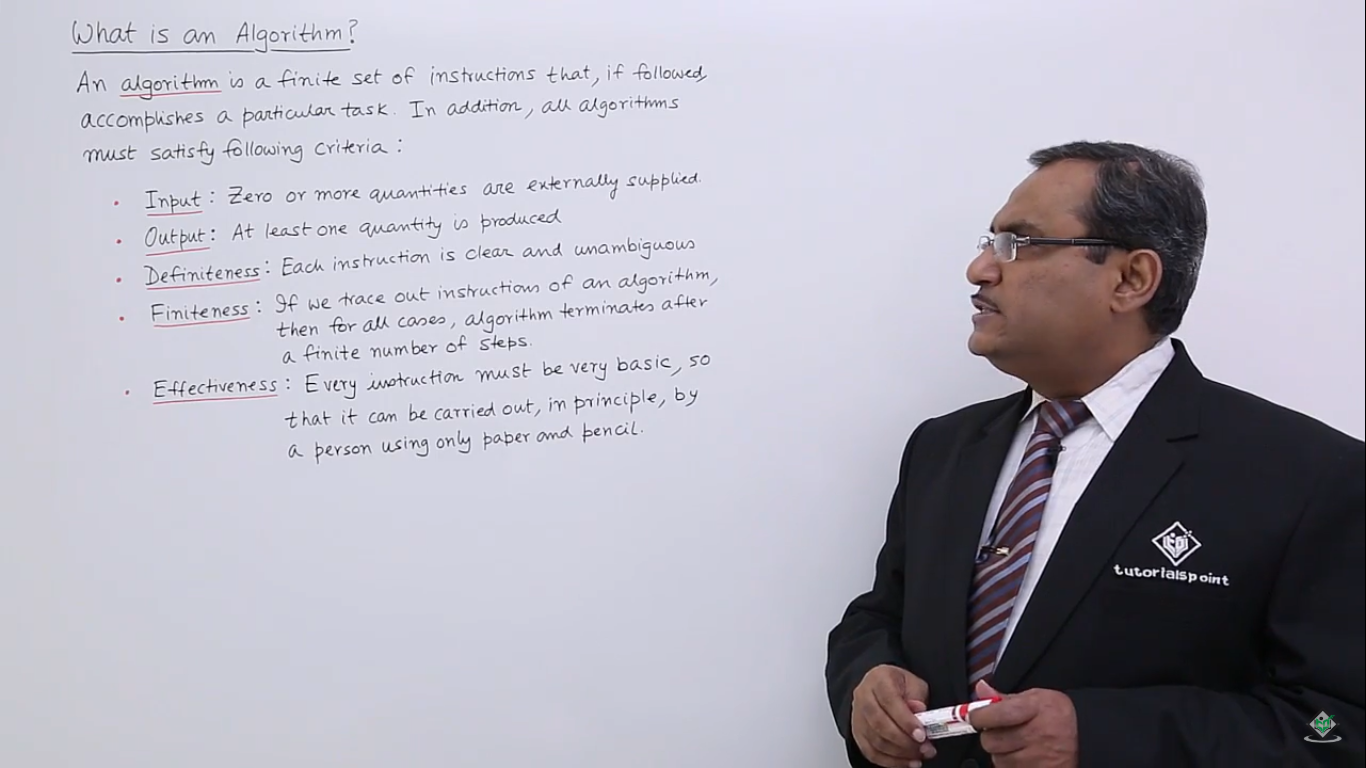 What is an Algorithm?
An algorithm is a finite set of instructions that, if followed,
accomplishes a particular task. In addition, all algorithms
must satisfy following criteria:
• Input: Zero or more quantities are externally supplied.
• Output: At least one quantity is produced
• Definiteness: Each instruction is clear and unambiguous
• Finiteness: If we trace out instructions of an algorithm,
then for all cases, algorithm terminates after
a finite number of steps.
• Effectiveness: Every instruction must be very basic, so
that it can be carried out, in principle, by
a person using only paper and pencil.
tutorialspoint